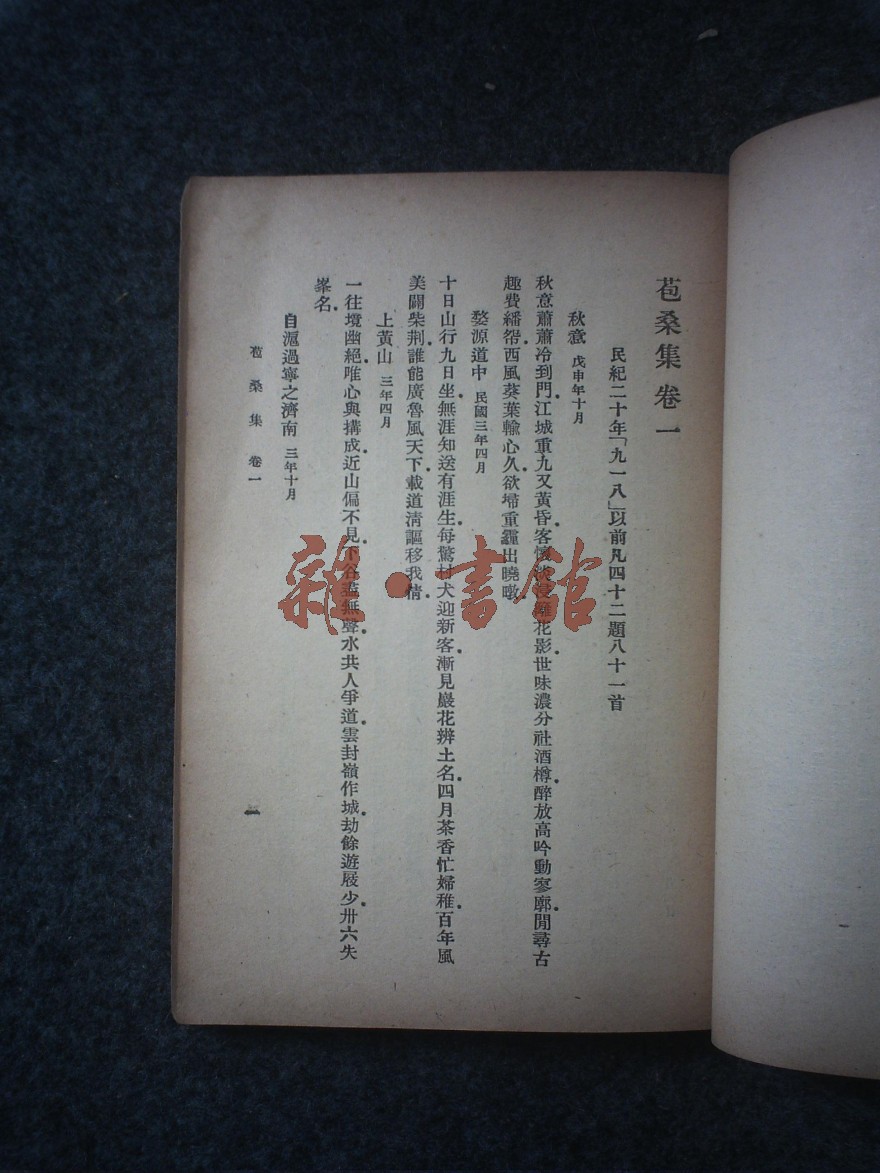 苞桑集 卷一
民紀二十年「九一八」以前凡四十二題八十一首
秋意 戊申年十月
秋意蕭蕭冷到門．江城重九又黃昏．客懷淡 花影．世味濃分社酒樽．醉放高吟動寥廓．閒尋古
趣費繙 ．西風葵葉輸心久．欲埽重霾出曉暾
婺源道中 民國三年四月
十日山行九日坐．無涯知送有涯生．每驚村犬迎新客．漸見巖花辨土名．四月茶香忙婦稚．百年風
美闢柴荆．誰能廣魯風天下．載道清謳移我情．
上黃山 三年四月
一往境幽絕．唯心與搆成．近山偏不見．下谷 無聲．水共人爭道．雲封嶺作城．劫餘遊屐少．卅六失
峯名．
自滬過寧之濟南 三年十月
苞桑集 卷一
一
雜·書館